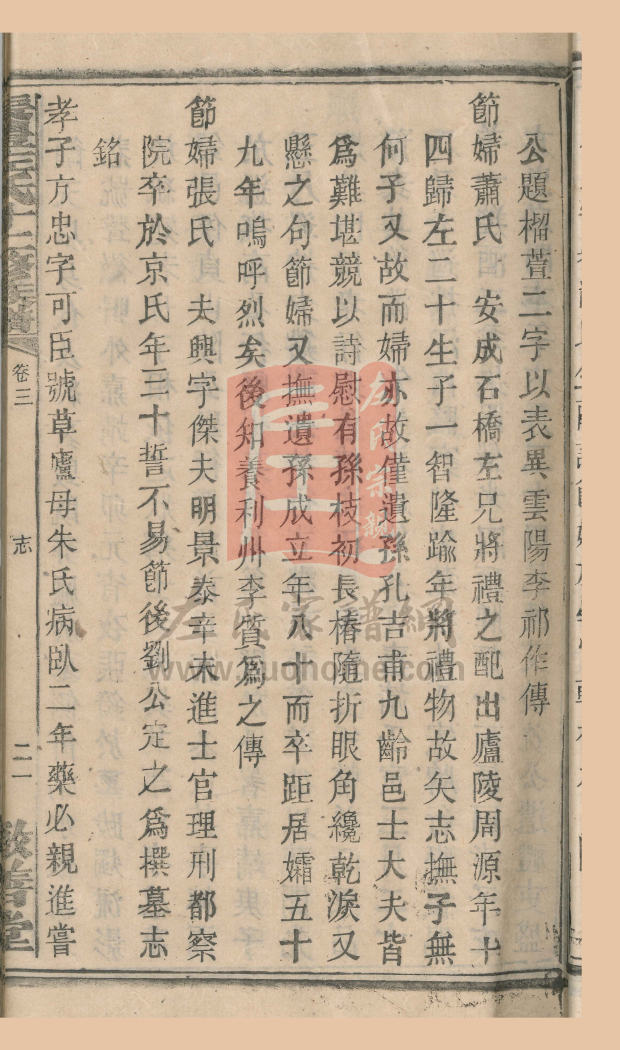 公題榴萱二字以表異雲陽李祁作傳
節婦蕭氏 安成石橋左兄將禮之配出廬陵周源年十
四歸左二十生子一智隆踰年將禮物故矢志撫子無
何子又故而婦亦故僅遺孫孔吉甫九齡邑士大夫皆
爲難堪競以詩慰有孫枝初長椿隨折眼角纔乾淚又
懸之句節婦又撫遺孫成立年八十而卒距居孀五十
九年嗚呼烈矣後知養利州李質爲之傳
節婦張氏 夫興字傑夫明景泰辛未進士官理刑都察
院卒於京氏年三十誓不易節後劉公定之爲撰墓志
銘
孝子方忠字可臣號草廬母朱氏病臥二年藥必親進嘗
卷三
志
二一
敬善堂
左氏宗親
左氏家譜網
www.zuohome.com